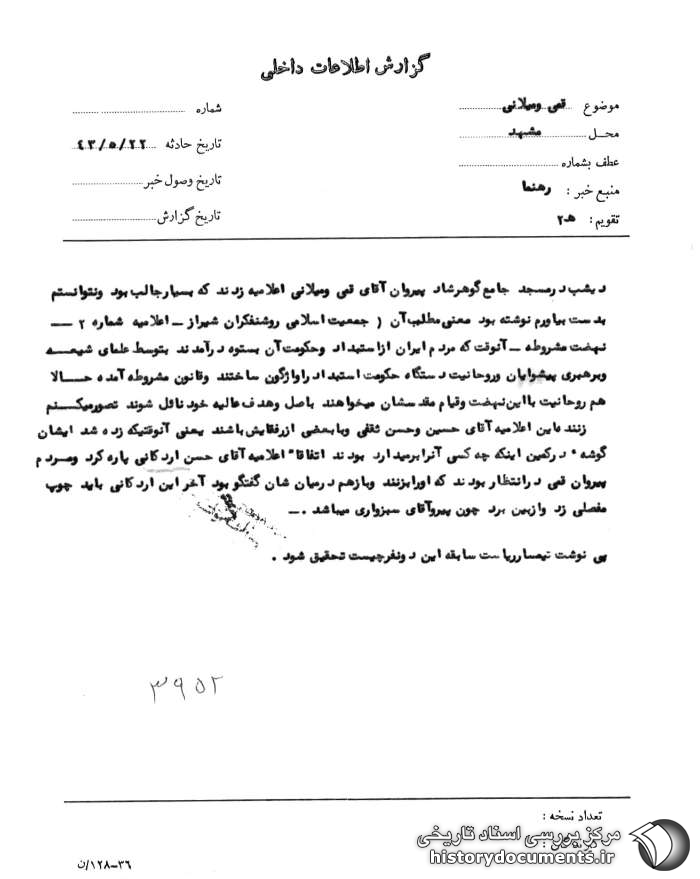 گزارش اطلاعات داخلی
موضوع قمی ومیلانی
شماره
محل مشهد
تاریخ حادثه ۴۳/۵/۲۲
عطف بشماره
تاریخ وصول خبر
منبع خبر : رهنما
تاریخ گزارش
تقویم : هـ۲
دیشب درمسجد جامع گوهرشاد پیروان آقای قمی ومیلانی اعلامیه زدند که بسیارجالب بود ونتوانستم
بدست بیاورم نوشته بود معنی مطلب آن ( جمعیت اسلامی روشنفکران شیراز ــ اعلامیه شماره ۲ ــ
نهضت مشروطه ــ آنوقت که مردم ایران ازاستبداد وحکومت آن بستوه درآمدند بتوسط علمای شیعه
وبرهبری پیشوایان وروحانیت دستگاه حکومت استبداد راواژگون ساختند وقانون مشروطه آمده حالا
هم روحانیت بااین نهضت وقیام مقدسشان میخواهند باصل وهدف عالیه خود نائل شوند تصورمیکنم
زننده این اعلامیه آقای حسین وحسن ثقفی وبابعضی ازرفقایش باشند یعنی آنوقتیکه زده شد ایشان
گوشه ٔ درکمین اینکه چه کسی آنرابرمیدارد بودند اتفاقا" اعلامیه آقای حسن اردکانی پاره کرد ومردم
پیروان قمی درانتظار بودند که اورابزنند وبازهم درمیان شان گفتگو بود آخر این اردکانی باید چوب
مفصلی زد وازبین برد چون پیروآقای سبزواری میباشد .ــ
پی نوشت تیمسارریاست سابقه این دونفرچیست تحقیق شود .
۳۹۵۲
تعداد نسخه :
مرکز بررسی اسناد تاریخی
historydocuments.ir
۳۶-۱۲۸/ن